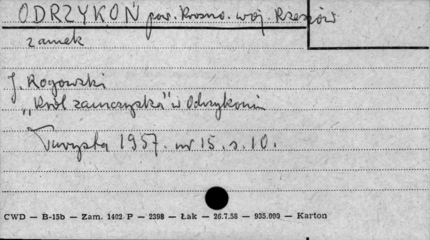 ODRZYKOŃ pow. Krosno. woj. Rzeszów
zamek
J. Rogowski
„Król zamczyska" w Odrzykoniu
Turysta 1957. nr 15. s. 10.
CWD — B-15b — Zam. 1402 P — 2398 — Łak — 26.7.58 — 935.000 — Karton